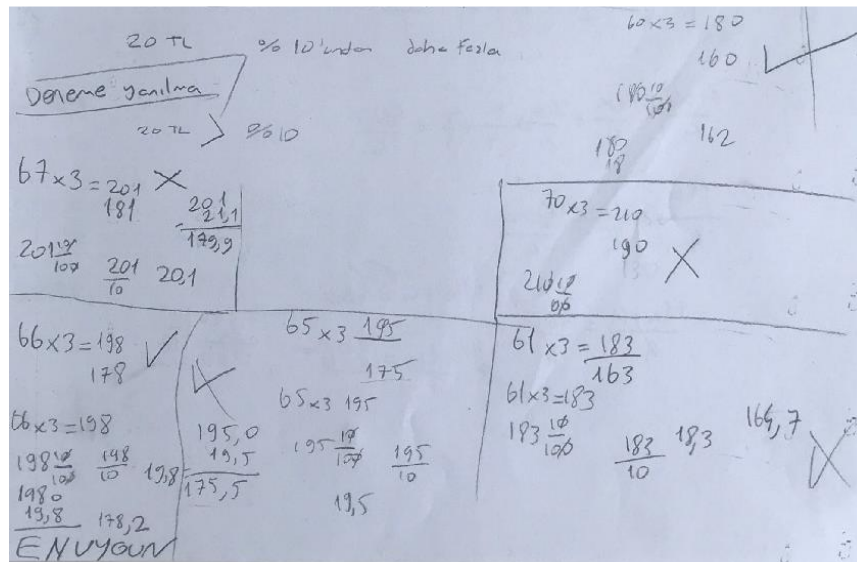 20 TL % 10'undan daha fazla
Deneme yanılma
20 TL > %10
60x3 = 180
160 ✓
180 10/100
180
18
162
67x3 = 201 X
181
201
21,1
179,9
201 10/100
201/10 20,1
70x3 = 210
190 X
210 10/100
66x3 = 198 ✓
178
66x3 = 198
198 10/100 198/10 19,8
1980
19,8
178,2
EN UYGUN
65x3 195
175
65x3 195
195,0
19,5
175,5
195 10/100 195/10
19,5
61x3 = 183
163
61x3 = 183
183 10/100 183/10 18,3
164,7 X